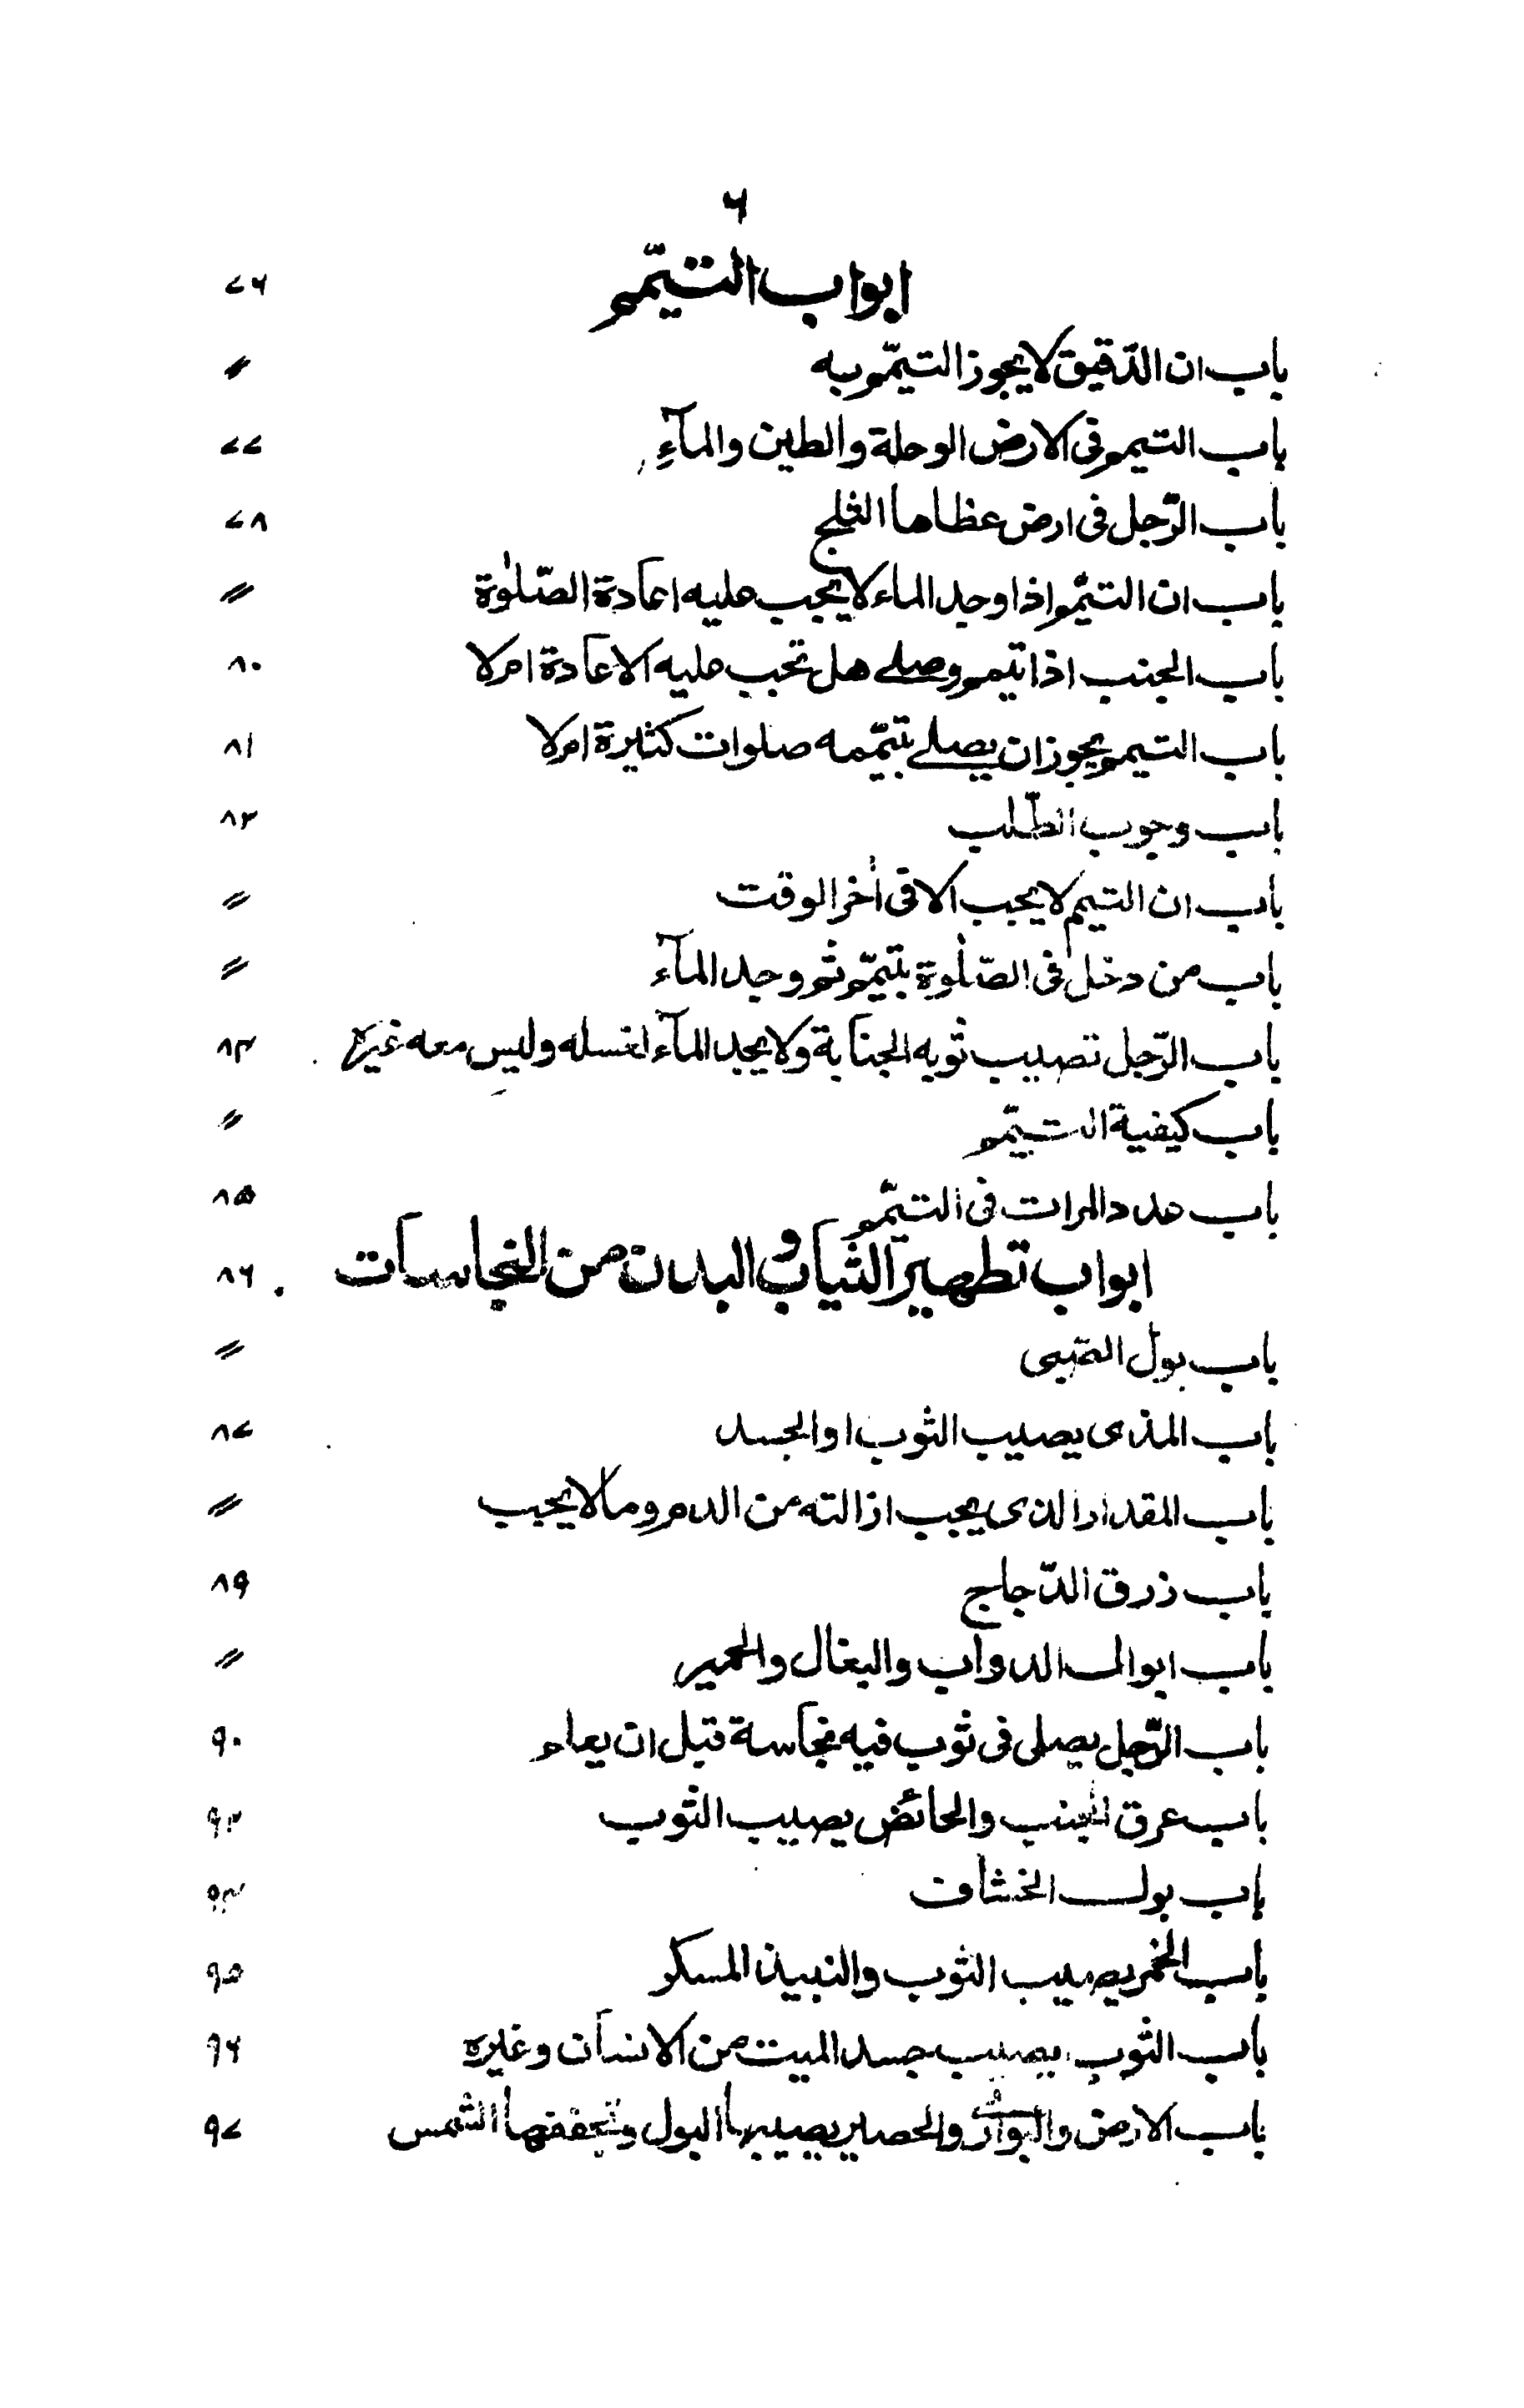 ۶
ابواب التيمّم ۷۶
باب ان الدّقيق لا يجوز التيمّم به 〃
باب التيمم فى الارض الوحلة والطين والمآءِ ۷۷
باب الرّجل فى ارض غطاها الثلج ۷۸
باب ان التيمّم اذا وجد الماء لا يجب عليه اعادة الصّلوٰة 〃
باب الجنب اذا تيمم وصلے هل تجب عليه الاعادة ام لا ۸۰
باب التيمم يجوز ان يصلے بتيمّمه صلوات كثيرة ام لا ۸۱
باب وجوب الطّلب ۸۲
باب ان التيمم لا يجب الا فى اٰخر الوقت 〃
باب من دخل فى الصّلٰوة بتيمّم ثم وجد المآء 〃
باب الرّجل تصيب ثوبه الجنابة ولا يجد المآء لغسله وليس معه غيره ۸۳
باب كيفية التيمّم 〃
باب عدد المرات فى التيمّم ۸۵
ابواب تطهير الثياب والبدن من النجاسات ۸۶
باب بول الصّبى 〃
باب المذى يصيب الثوب او الجسد ۸۷
باب المقدار الذى يجب ازالته من الدم وما لا يجب 〃
باب ذرق الدّجاج ۸۹
باب ابوال الدواب والبغال والحمير 〃
باب الرّجل يصلى فى ثوب فيه نجاسة قبل ان يعلم ۹۰
باب عرق الجنب والحائض يصيب الثوب ۹۲
باب بول الخشاف ۹۳
باب الخمر يصيب الثوب والنبيذ المسكر ۹۵
باب الثوب يصيب جسد الميت من الانسان وغيره ۹۶
باب الارض والبوارى والحصير يصيبها البول وتجففها الشمس ۹۷